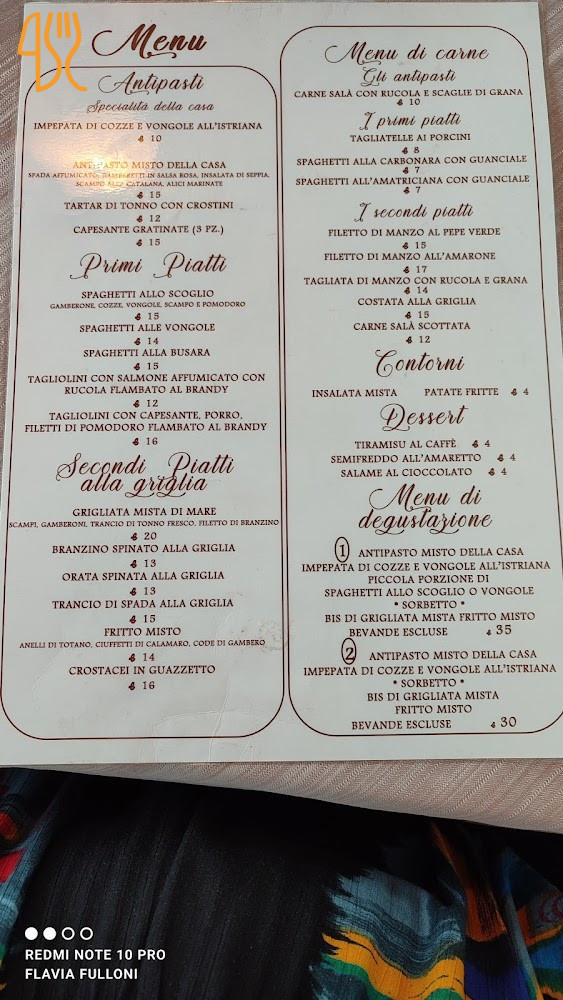 Menu
Antipasti
Specialità della casa
IMPEPATA DI COZZE E VONGOLE ALL'ISTRIANA
€ 10
ANTIPASTO MISTO DELLA CASA
SPADA AFFUMICATO, GAMBERETTI IN SALSA ROSA, INSALATA DI SEPPIA,
SCAMPO ALLA CATALANA, ALICI MARINATE
€ 15
TARTAR DI TONNO CON CROSTINI
€ 12
CAPESANTE GRATINATE (3 PZ.)
€ 15
Primi Piatti
SPAGHETTI ALLO SCOGLIO
GAMBERONE, COZZE, VONGOLE, SCAMPO E POMODORO
€ 15
SPAGHETTI ALLE VONGOLE
€ 14
SPAGHETTI ALLA BUSARA
€ 15
TAGLIOLINI CON SALMONE AFFUMICATO CON
RUCOLA FLAMBATO AL BRANDY
€ 12
TAGLIOLINI CON CAPESANTE, PORRO,
FILETTI DI POMODORO FLAMBATO AL BRANDY
€ 16
Secondi Piatti
alla griglia
GRIGLIATA MISTA DI MARE
SCAMPI, GAMBERONI, TRANCIO DI TONNO FRESCO, FILETTO DI BRANZINO
€ 20
BRANZINO SPINATO ALLA GRIGLIA
€ 13
ORATA SPINATA ALLA GRIGLIA
€ 13
TRANCIO DI SPADA ALLA GRIGLIA
€ 15
FRITTO MISTO
ANELLI DI TOTANO, CIUFFETTI DI CALAMARO, CODE DI GAMBERO
€ 14
CROSTACEI IN GUAZZETTO
€ 16
Menu di carne
Gli antipasti
CARNE SALÀ CON RUCOLA E SCAGLIE DI GRANA
€ 10
I primi piatti
TAGLIATELLE AI PORCINI
€ 8
SPAGHETTI ALLA CARBONARA CON GUANCIALE
€ 7
SPAGHETTI ALL'AMATRICIANA CON GUANCIALE
€ 7
I secondi piatti
FILETTO DI MANZO AL PEPE VERDE
€ 15
FILETTO DI MANZO ALL'AMARONE
€ 17
TAGLIATA DI MANZO CON RUCOLA E GRANA
€ 14
COSTATA ALLA GRIGLIA
€ 15
CARNE SALÀ SCOTTATA
€ 12
Contorni
INSALATA MISTA PATATE FRITTE € 4
Dessert
TIRAMISU AL CAFFÈ € 4
SEMIFREDDO ALL'AMARETTO € 4
SALAME AL CIOCCOLATO € 4
Menu di
degustazione
1 ANTIPASTO MISTO DELLA CASA
IMPEPATA DI COZZE E VONGOLE ALL'ISTRIANA
PICCOLA PORZIONE DI
SPAGHETTI ALLO SCOGLIO O VONGOLE
* SORBETTO *
BIS DI GRIGLIATA MISTA FRITTO MISTO
BEVANDE ESCLUSE € 35
2 ANTIPASTO MISTO DELLA CASA
IMPEPATA DI COZZE E VONGOLE ALL'ISTRIANA
* SORBETTO *
BIS DI GRIGLIATA MISTA
FRITTO MISTO
BEVANDE ESCLUSE € 30
REDMI NOTE 10 PRO
FLAVIA FULLONI